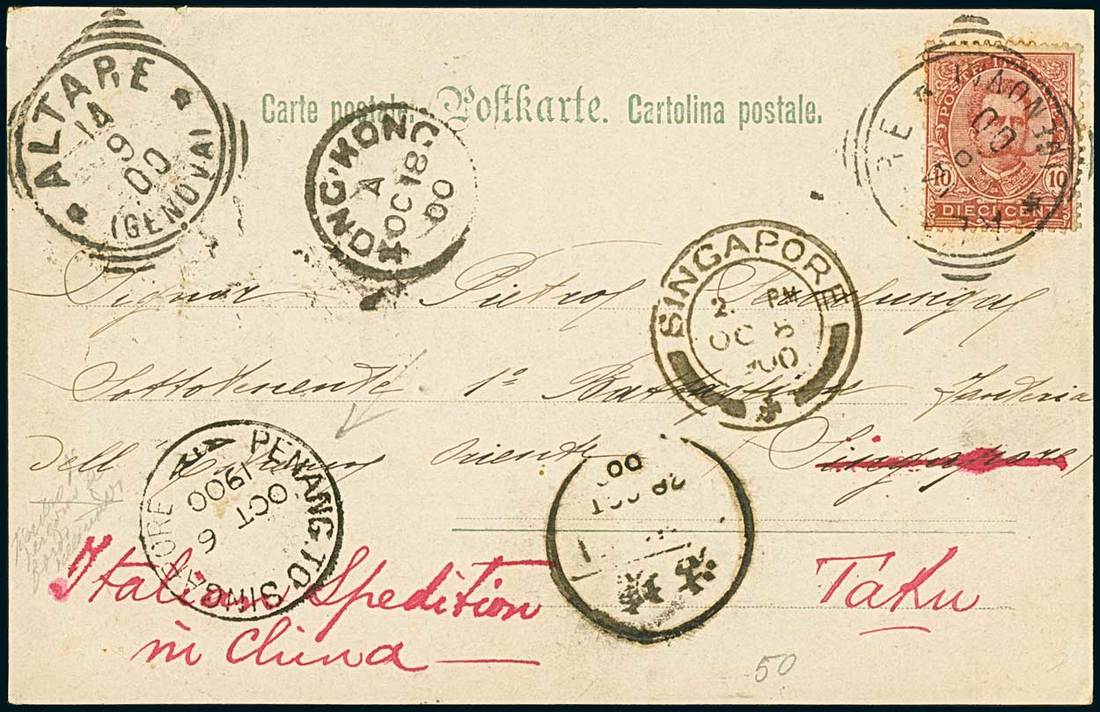 ALTARE
14
9
00
(GENOVA)
Carte postale. Postkarte. Cartolina postale.
HONG KONG
A
OC 18
00
POSTE
10 10
DIECI CENT
SINGAPORE
2 PM
OC 8
1900
Signor Pietro
Sottotenente 1º Fanteria
dell Oriente Singapore
PENANG.TO SINGAPORE
A
6
OCT
1900
28 OCT
00
Italian Spedition Taku
in China
50